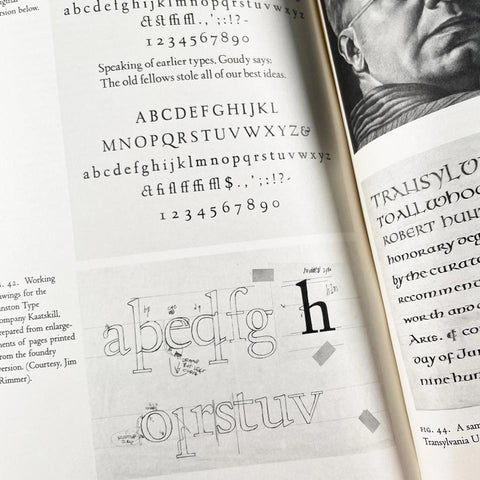 version below.
abcdefghijklmnopqrstuvwxyz
1234567890
Speaking of earlier types, Goudy says:
The old fellows stole all of our best ideas.
ABCDEFGHIJKL
MNOPQRSTUVWXYZ&
abcdefghijklmnopqrstuvwxyz
$.,';:!?-
1234567890
G. 42. Working
awings for the
anston Type
ompany Kaatskill,
epared from enlarge-
ents of pages printed
om the foundry
ersion. (Courtesy, Jim
Rimmer).
abedqfg h
oprstuv
TRANSYLV
TO ALL WHO
ROBERT HUN
honorary deg
by the curato
recommen
worth and
Arts. ¶ CO
day of Jun
nine hun
FIG. 44. A sam
Transylvania U